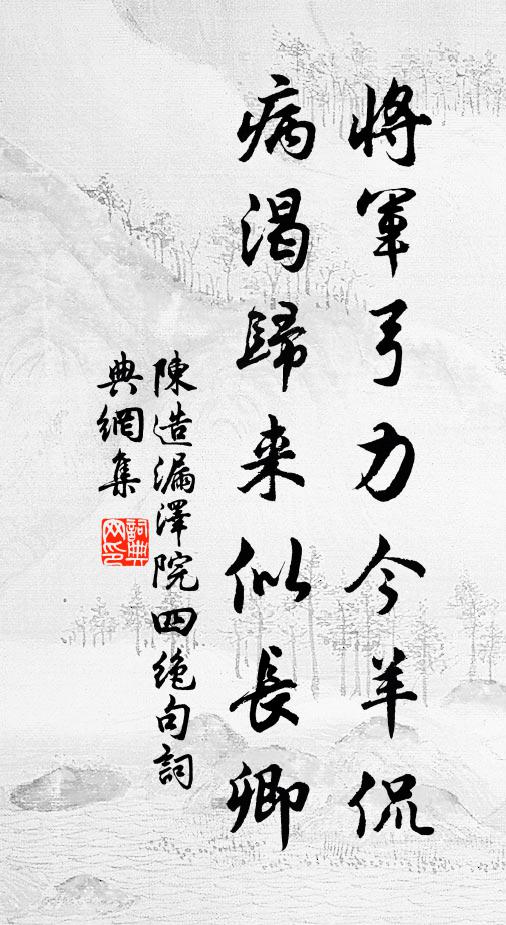 將軍弓力今羊侃
病渴歸来似長卿
陳造漏澤院四绝句詞
典網集
詞典网印